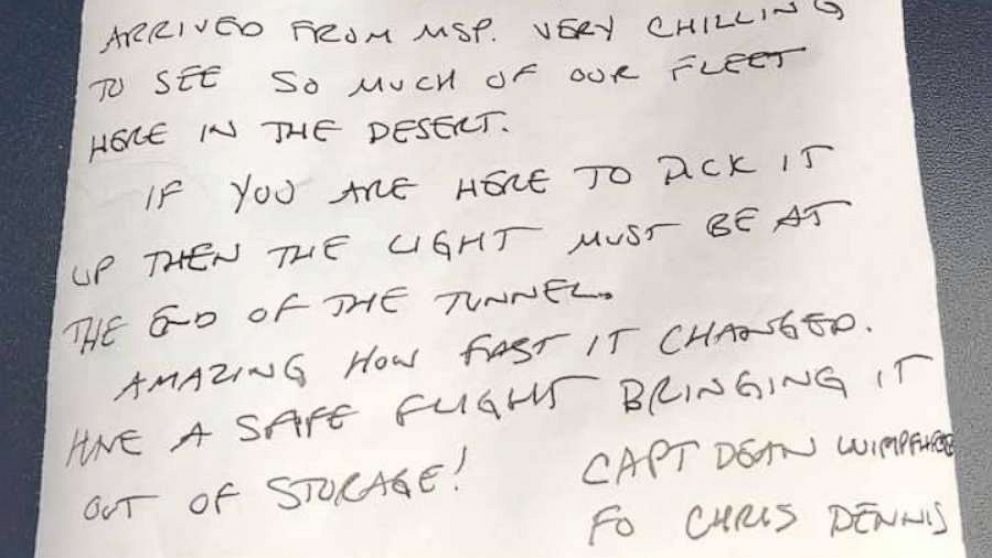 ARRIVED FROM MSP. VERY CHILLING
TO SEE SO MUCH OF OUR FLEET
HERE IN THE DESERT.
IF YOU ARE HERE TO PICK IT
UP THEN THE LIGHT MUST BE AT
THE END OF THE TUNNEL.
AMAZING HOW FAST IT CHANGED.
HAVE A SAFE FLIGHT BRINGING IT
OUT OF STORAGE!
CAPT DEAN
FO CHRIS DENNIS